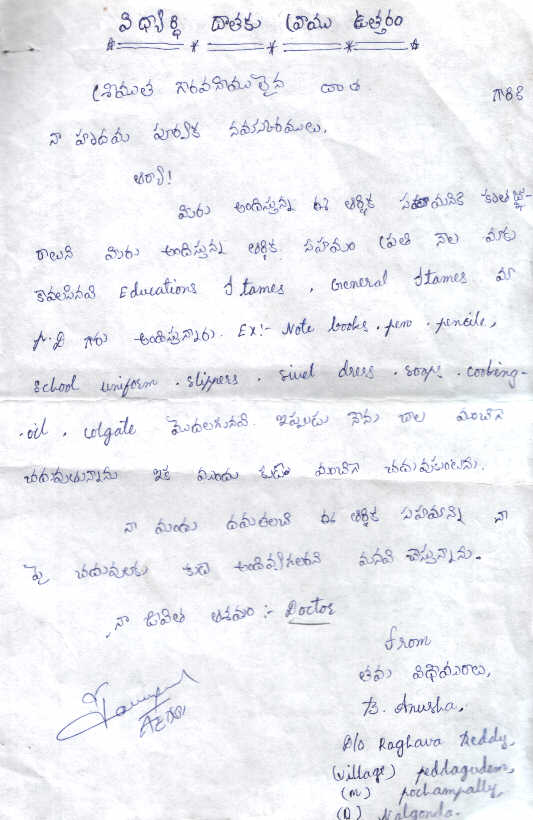 విద్యార్థి దాతకు వ్రాయు ఉత్తరం
శ్రీమతి గౌరవనీయులైన దాత గారికి
నా హృదయ పూర్వక నమస్కారములు.
ఆర్యా!
మీరు అందిస్తున్న ఈ ఆర్థిక
మీరు అందిస్తున్న ఆర్థిక సహయం ప్రతి నెల మాకు
కావలసినవి Educations Itames, General Itames మా
గారు అందిస్తున్నారు. Ex:- Note books, pen, pencile,
School uniform, slippers, sivel dress, soaps, cooking-
oil, colgate మొదలగునవి. ఇప్పుడు నేను చాల మంచిగా
చదువుతున్నాను ఇక ముందు కూడా మంచిగా చదువుకుంటను.
నా ఈ ఆర్థిక సహయాన్ని నా
పై చదువులకు కూడా అందివ్వగలరని మనవి చేస్తున్నాను.
నా జీవిత ఆశయం :- Doctor
From
తమ విధేయురాలు,
B. Anusha,
D/o Raghava Reddy,
(village) peddagudem,
(m) pochampally,
(D) Nalgonda.